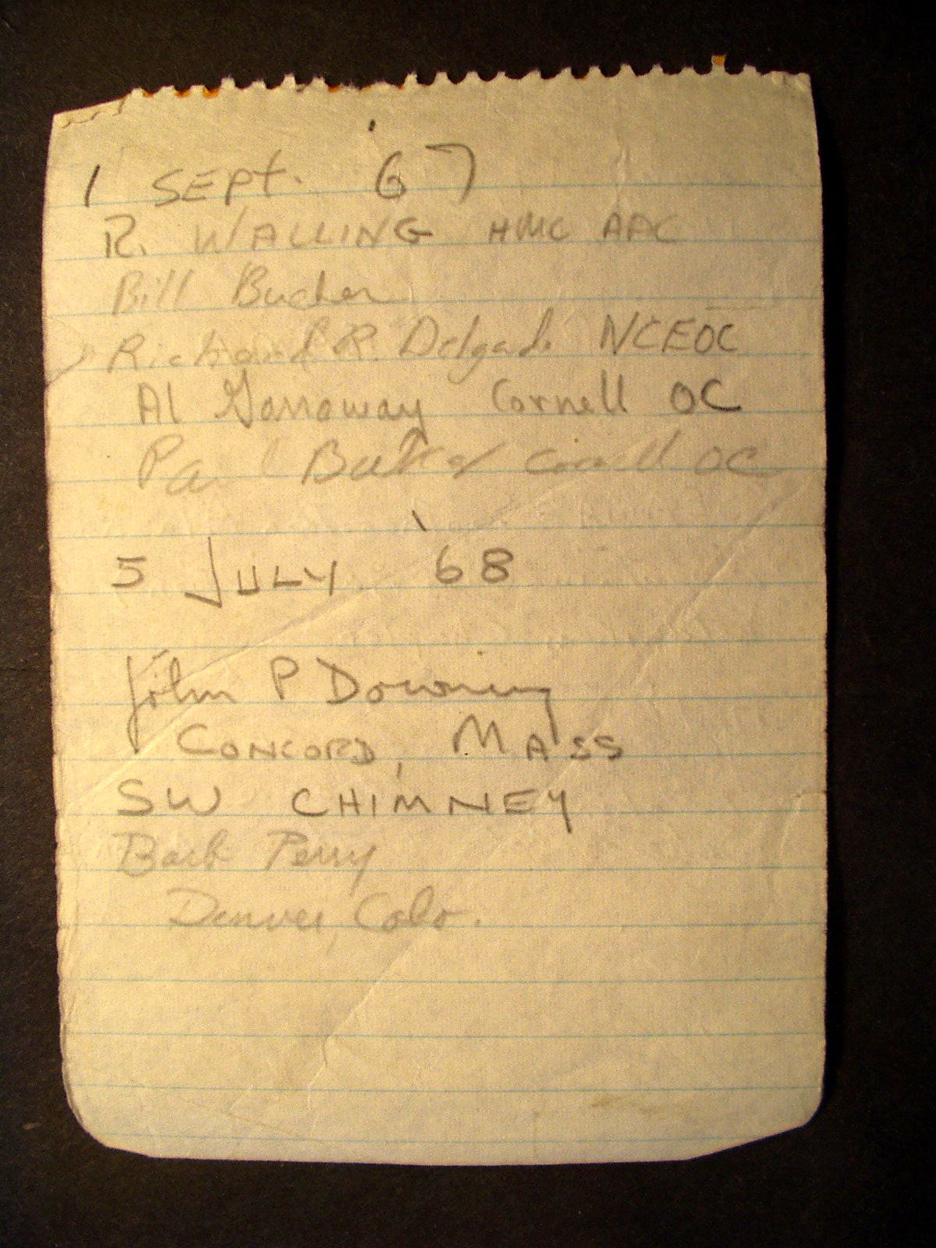 1 SEPT. '67
R. WALLING HMC AAC
Bill Bucher
Richard R. Delgado NCEOC
Al Garraway Cornell OC
Paul Cornell OC
5 JULY '68
John P Downing
CONCORD, MASS
SW CHIMNEY
Barb Perry
Denver, Colo.